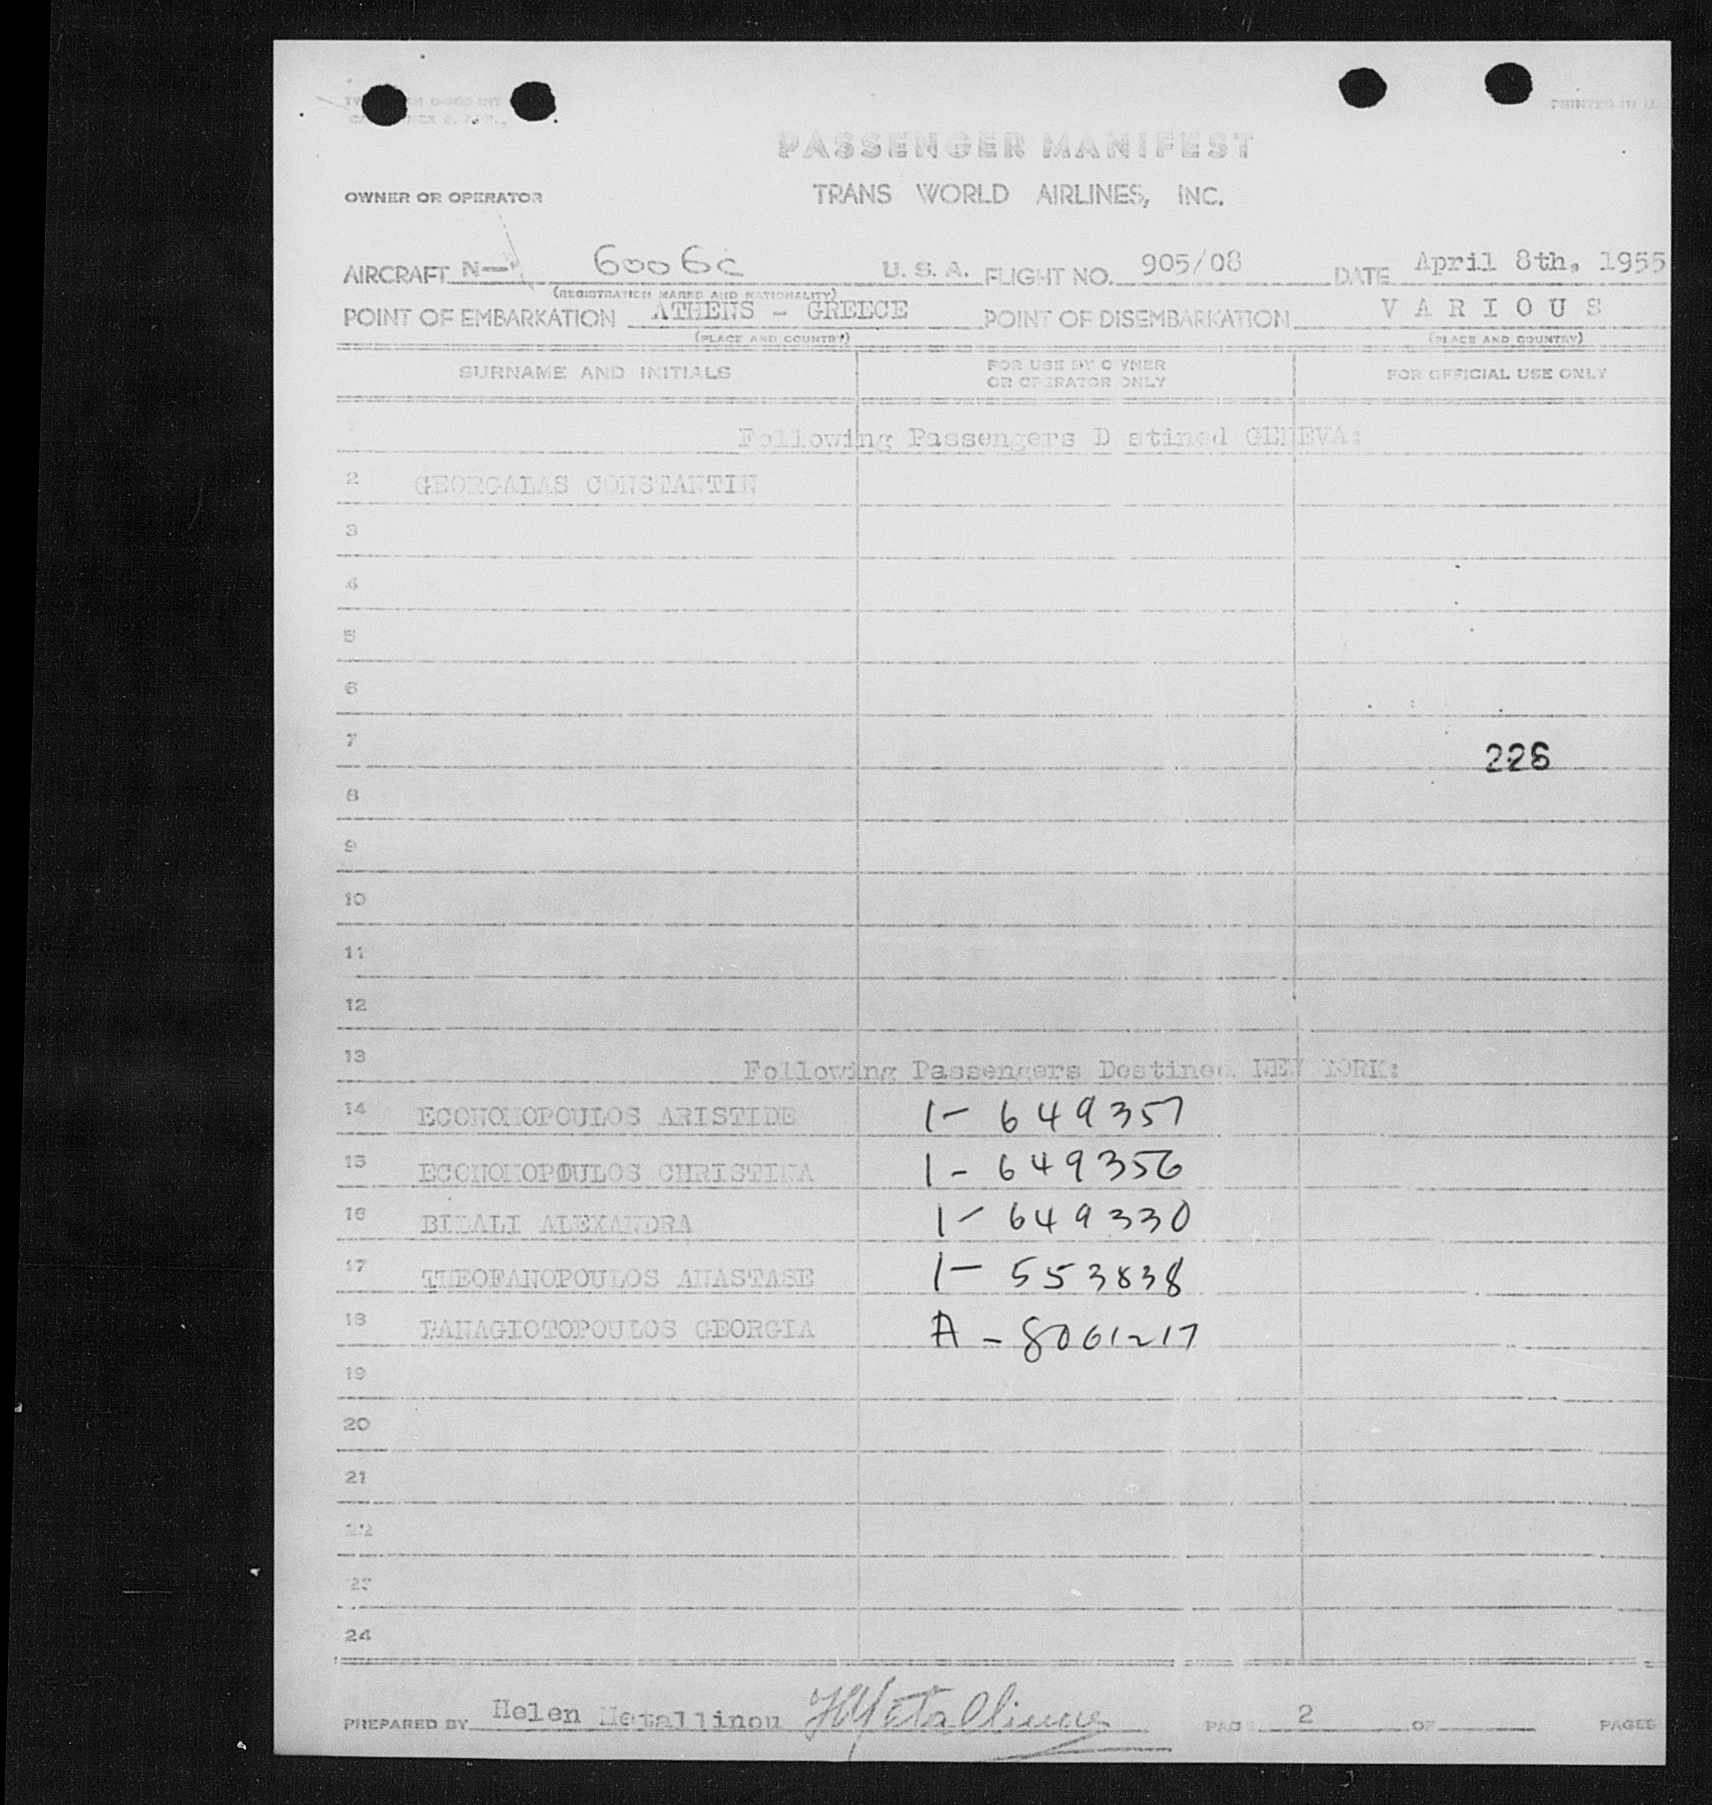 PRINTED IN U.
PASSENGER MANIFEST
OWNER OR OPERATOR TRANS WORLD AIRLINES, INC.
AIRCRAFT N— 6006C U. S. A. FLIGHT NO. 905/08 DATE April 8th, 1955
(REGISTRATION MARKS AND NATIONALITY)
POINT OF EMBARKATION ATHENS - GREECE POINT OF DISEMBARKATION V A R I O U S
(PLACE AND COUNTRY) (PLACE AND COUNTRY)
SURNAME AND INITIALS FOR USE BY OWNER OR OPERATOR ONLY FOR OFFICIAL USE ONLY
Following Passengers D stined GENEVA:
2 GEORGALAS CONSTANTIN
3
4
5
6
7 226
8
9
10
11
12
13 Following Passengers Destined NEW YORK:
14 ECONOMOPOULOS ARISTIDE 1- 649357
15 ECONOMOPOULOS CHRISTINA 1- 649356
16 BILALI ALEXANDRA 1- 649330
17 THEOFANOPOULOS ANASTASE 1- 553838
18 PANAGIOTOPOULOS GEORGIA A- 8061217
19
20
21
22
23
24
PREPARED BY Helen Metallinou HMetallinou PAGE 2 OF PAGES